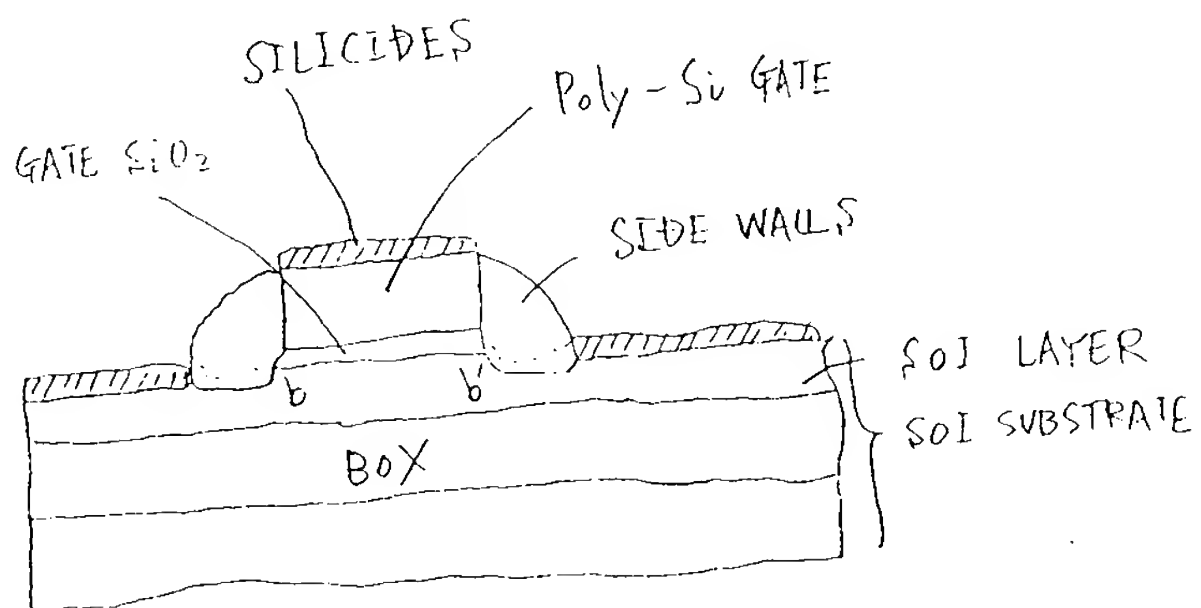 SILICIDES
Poly-Si GATE
GATE SiO₂
SIDE WALLS
SOI LAYER
SOI SUBSTRATE
b b'
BOX